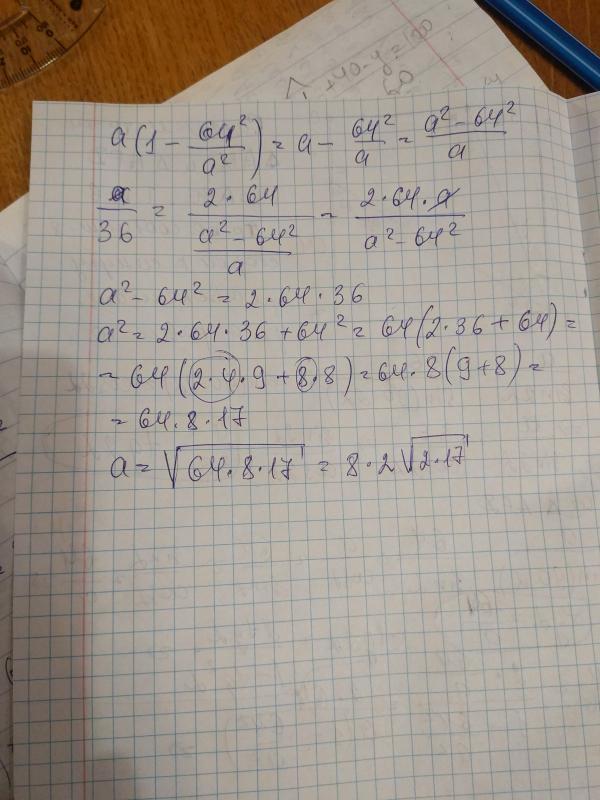 a(1 - 64²/a²) = a - 64²/a = (a² - 64²)/a
a/36 = (2·64)/((a² - 64²)/a) = (2·64·a)/(a² - 64²)
a² - 64² = 2·64·36
a² = 2·64·36 + 64² = 64(2·36 + 64) =
= 64(2·4·9 + 8·8) = 64·8(9+8) =
= 64·8·17
a = √(64·8·17) = 8·2√(2·17)